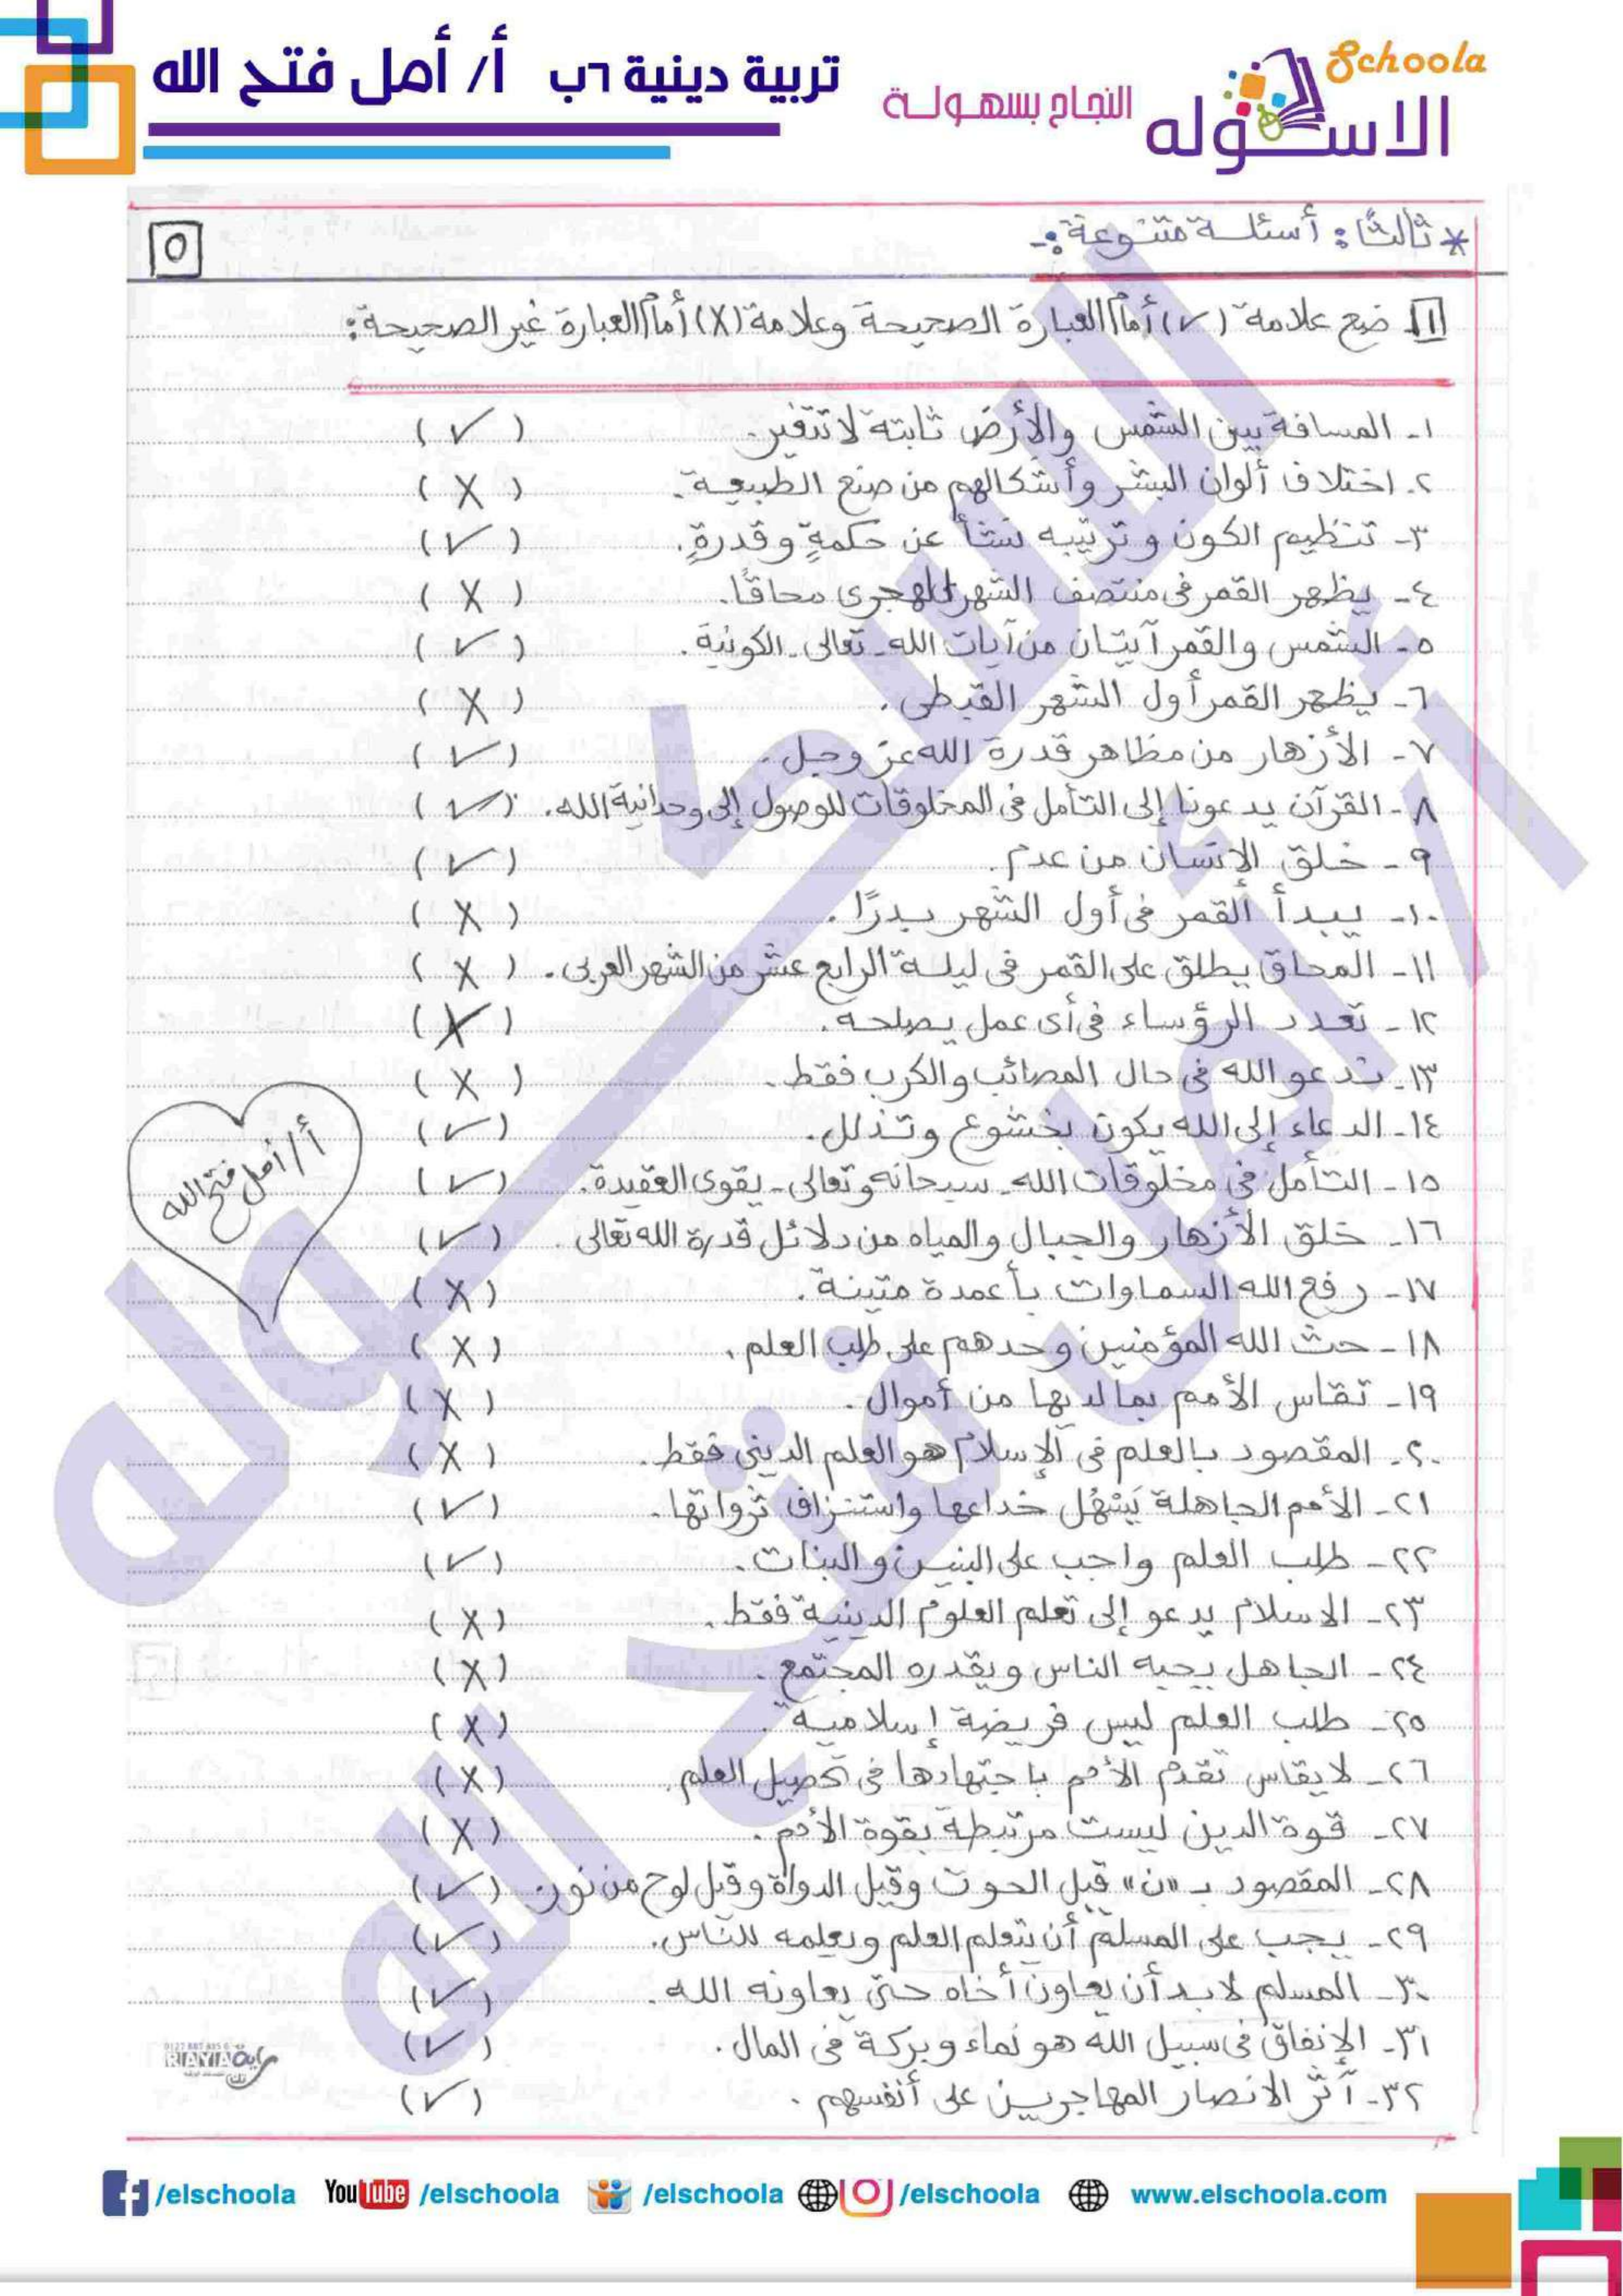 Schoola
الاسكوله
النجاح بسهولة
تربية دينية ٦ب أ/ أمل فتح الله
* ثالثًا: أسئلة متنوعة:-
٥
١ ضع علامة (✓) أمام العبارة الصحيحة وعلامة (X) أمام العبارة غير الصحيحة:
١- المسافة بين الشمس والأرض ثابتة لا تتغير. (✓)
٢- اختلاف ألوان البشر وأشكالهم من صنع الطبيعة. (X)
٣- تنظيم الكون وترتيبه نشأ عن حكمةٍ وقدرةٍ. (✓)
٤- يظهر القمر فى منتصف الشهر الهجرى محاقًا. (X)
٥- الشمس والقمر آيتان من آيات الله - تعالى - الكونية. (✓)
٦- يظهر القمر أول الشهر القبطى. (X)
٧- الأزهار من مظاهر قدرة الله عز وجل. (✓)
٨- القرآن يدعونا إلى التأمل فى المخلوقات للوصول إلى وحدانية الله. (✓)
٩- خلق الإنسان من عدم. (✓)
١٠- يبدأ القمر فى أول الشهر بدرًا. (X)
١١- المحاق يطلق على القمر فى ليلة الرابع عشر من الشهر العربى. (X)
١٢- تعدد الرؤساء فى أى عمل يصلحه. (X)
١٣- ندعو الله فى حال المصائب والكرب فقط. (X)
١٤- الدعاء إلى الله يكون بخشوع وتذلل. (✓)
١٥- التأمل فى مخلوقات الله - سبحانه وتعالى - يقوى العقيدة. (✓)
١٦- خلق الأزهار والجبال والمياه من دلائل قدرة الله تعالى. (✓)
١٧- رفع الله السماوات بأعمدة متينة. (X)
١٨- حث الله المؤمنين وحدهم على طلب العلم. (X)
١٩- تقاس الأمم بما لديها من أموال. (X)
٢٠- المقصود بالعلم فى الإسلام هو العلم الدينى فقط. (X)
٢١- الأمم الجاهلة يَسْهُل خداعها واستنزاف ثرواتها. (✓)
٢٢- طلب العلم واجب على البنين والبنات. (✓)
٢٣- الاسلام يدعو إلى تعلم العلوم الدينية فقط. (X)
٢٤- الجاهل يحبه الناس ويقدره المجتمع. (X)
٢٥- طلب العلم ليس فريضة إسلامية. (X)
٢٦- لا يقاس تقدم الأمم باجتهادها فى تحصيل العلم. (X)
٢٧- قوة الدين ليست مرتبطة بقوة الأمم. (X)
٢٨- المقصود بـ «ن» قيل الحوت وقيل الدواة وقيل لوح من نور. (✓)
٢٩- يجب على المسلم أن يتعلم العلم ويعلمه للناس. (✓)
٣٠- المسلم لابد أن يعاون أخاه حتى يعاونه الله. (✓)
٣١- الإنفاق فى سبيل الله هو نماء وبركة فى المال. (✓)
٣٢- آثر الانصار المهاجرين على أنفسهم. (✓)
أ/ أمل فتح الله
الاسكوله
أ/ أمل فتح الله
RAYA
/elschoola YouTube /elschoola /elschoola /elschoola www.elschoola.com